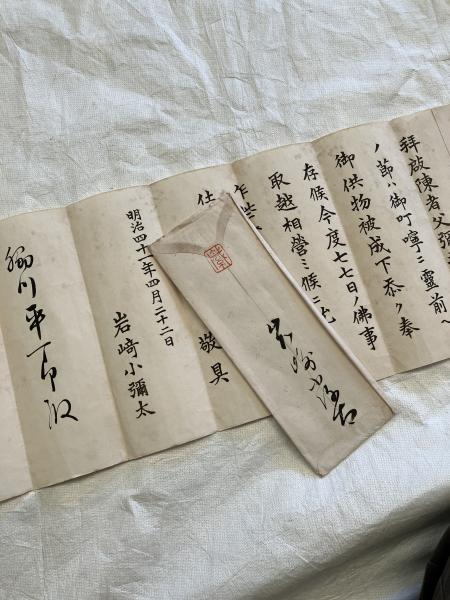 拜啟陳者父彌
ノ節ハ御叮嚀ニ靈前ヘ
御供物被成下忝ク奉
存候今度七七日ノ佛事
取越相營ミ候ニ
仕
敬具
明治四十一年四月二十二日
岩﨑小彌太
岩﨑小彌太